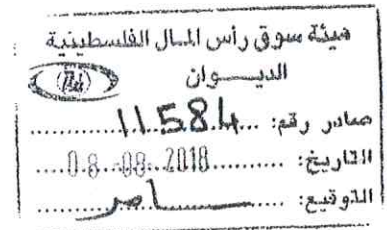 هيئة سوق رأس المال الفلسطينية
الديـــوان
صادر رقم: 11584
التاريخ: 08-08-2018
التوقيع: